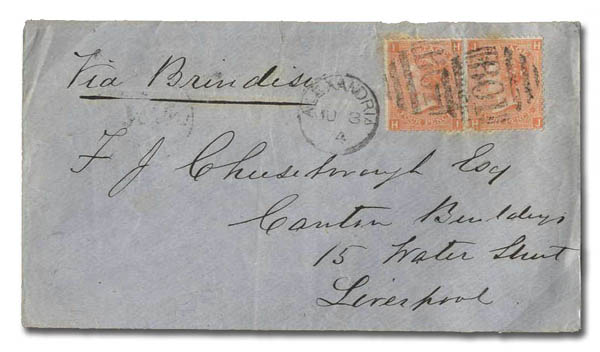 Via Brindisi
ALEXANDRIA
JU 8
4
F J Cheesebrough Esq
Canton Buildings
15 Water Street
Liverpool
B01
B01
H I
H I
H J